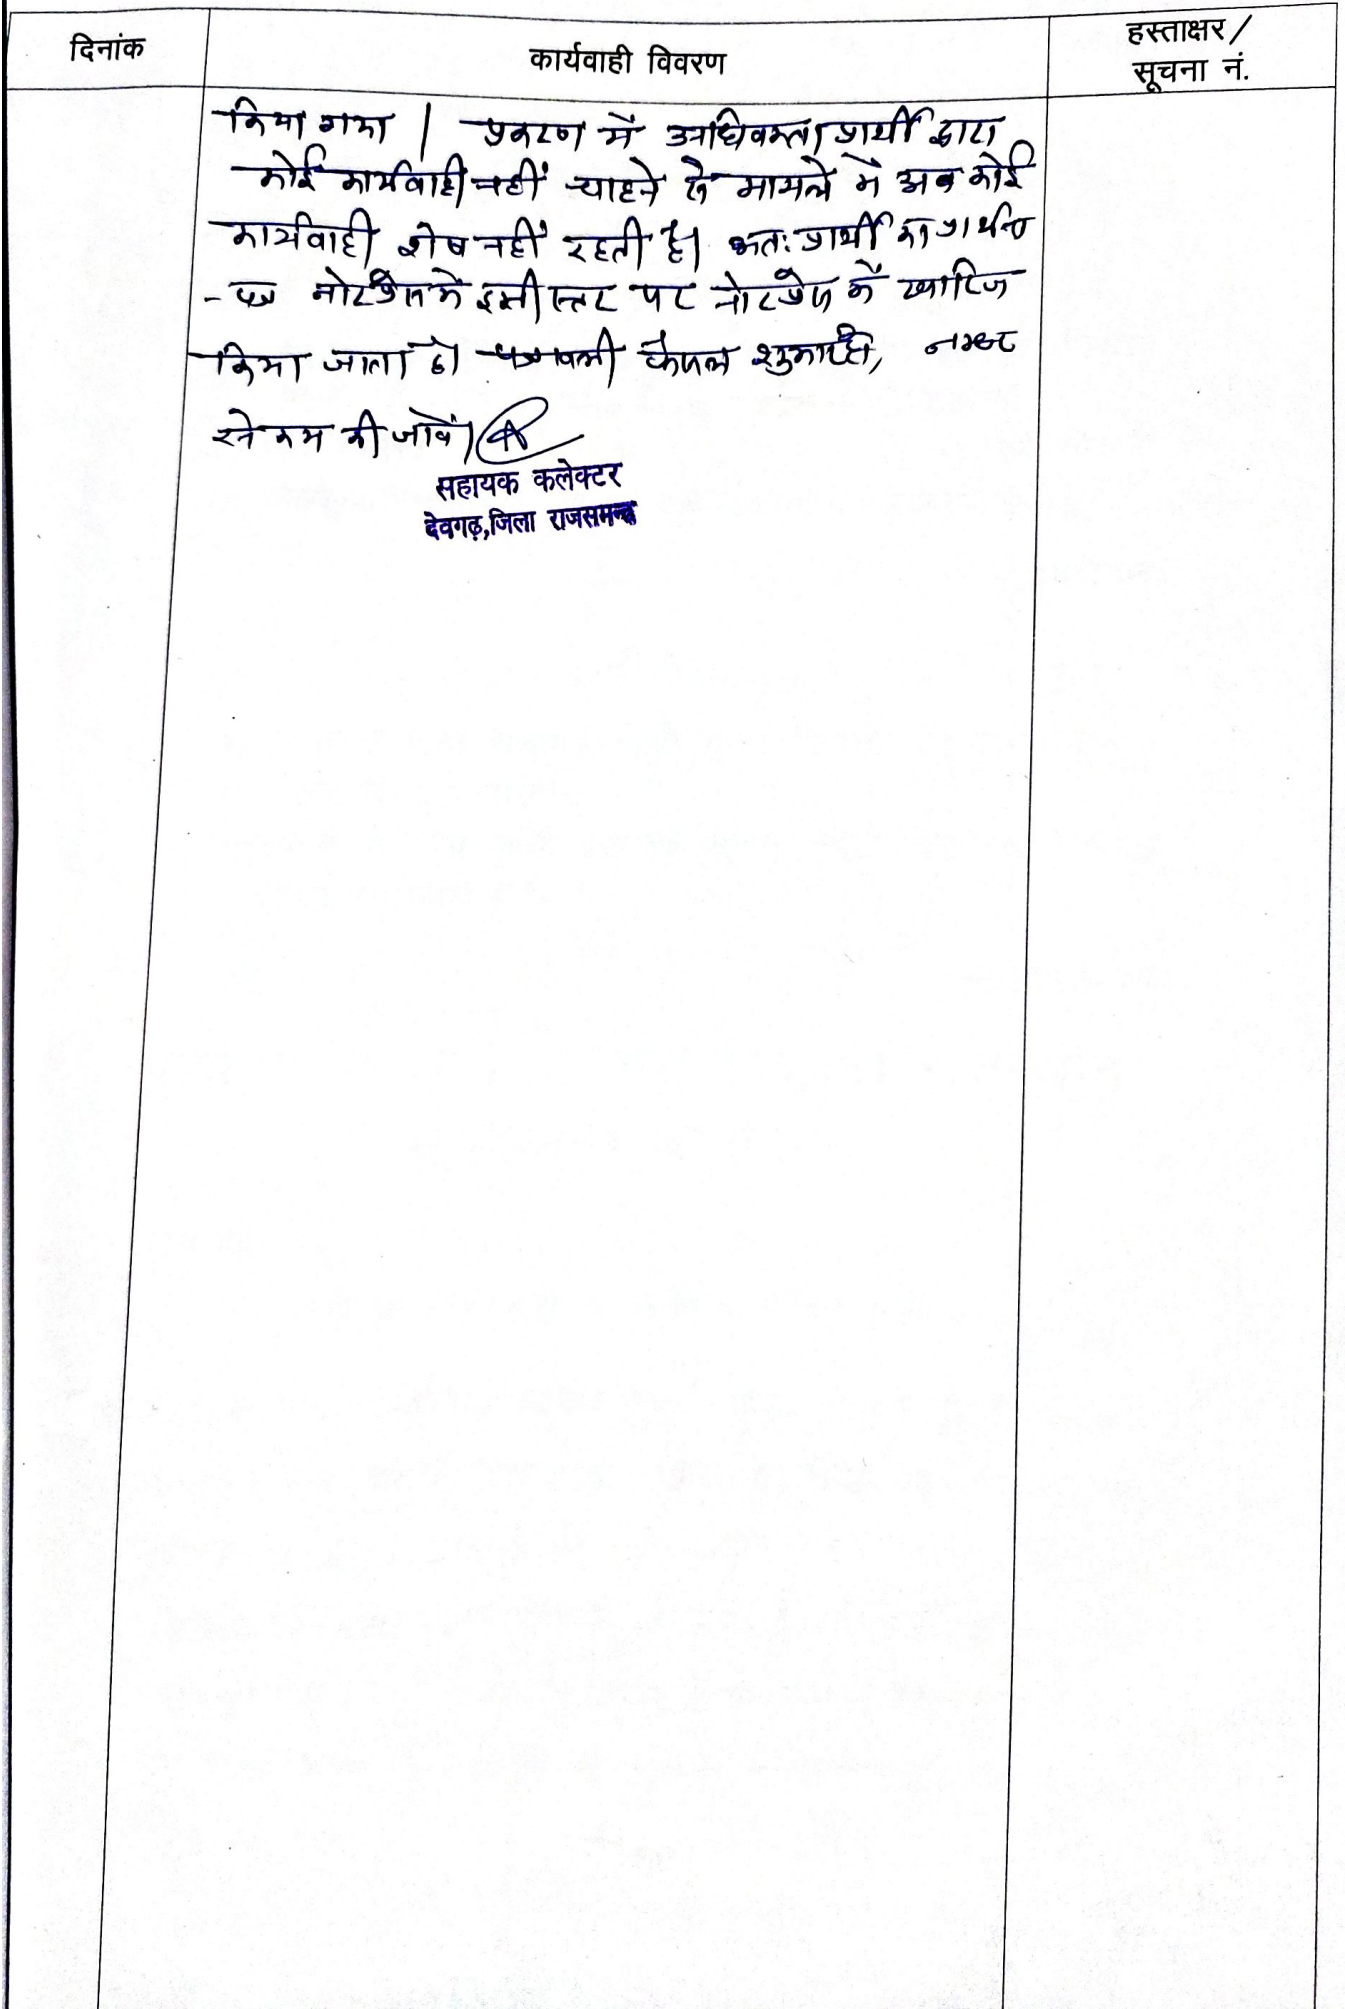 दिनांक
कार्यवाही विवरण
हस्ताक्षर/
सूचना नं.
किया गया | प्रकरण में अधिवक्ता प्रार्थी द्वारा
कोई कार्यवाही नहीं चाहने से मामले में अब कोई
कार्यवाही शेष नहीं रहती है। अतः प्रार्थी का प्रार्थना
- पत्र नोटप्रेस में इसी स्तर पर नोटप्रेस में खारिज
किया जाता है। पत्रावली फैसल शुमार हो, नम्बर
से कम की जावें।
सहायक कलेक्टर
देवगढ़,जिला राजसमन्द